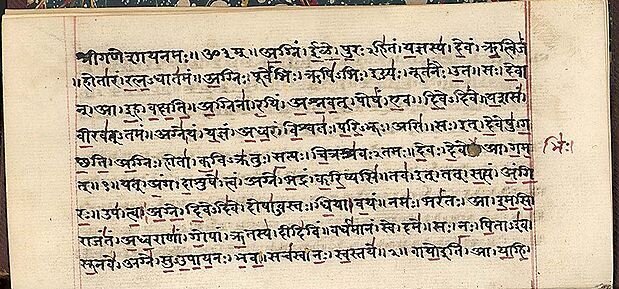 श्रीगणेशायनमः॥ ॐ३म्॥ अग्निं। ईळे। पुरःऽहितं। यज्ञस्य। देवं। ऋत्विजं
॥होतारं। रत्नऽधातमं॥ अग्निः। पूर्वेभिः। ऋषिऽभिः। ईड्यः। नूतनैः। उत। सः। देवा
न्। आ। इह। वक्षति॥ अग्निना। रयिं। अश्नवत्। पोषं। एव। दिवेऽदिवे। यशसं
वीरवत्ऽतमं॥ अग्ने। यं। यज्ञं। अध्वरं। विश्वतः। परिऽभूः। असि। सः। इत्। देवेषु। ग
च्छति॥ अग्निः। होता। कविऽक्रतुः। सत्यः। चित्रश्रवःऽतमः। देवः। देवे आ। गम भिः।
त्॥१॥ यत्। अंग। दाशुषे। त्वं। अग्ने। भद्रं। करिष्यसि। तव। इत्। तत्। सत्यं। अंगि
रः॥ उप। त्वा। अग्ने। दिवेऽदिवे। दोषाऽवस्तः। धिया। वयं। नमः। भरंतः। आ। इमसि
राजंतं। अध्वराणां। गोपां। ऋतस्य। दीदिविं। वर्धमानं। स्वे। दमे॥ सः। नः। पिताऽइव
सूनवे। अग्ने। सुऽउपायनः। भव। सचस्व। नः। स्वस्तये॥२॥ वायो इति। आ। याहि।